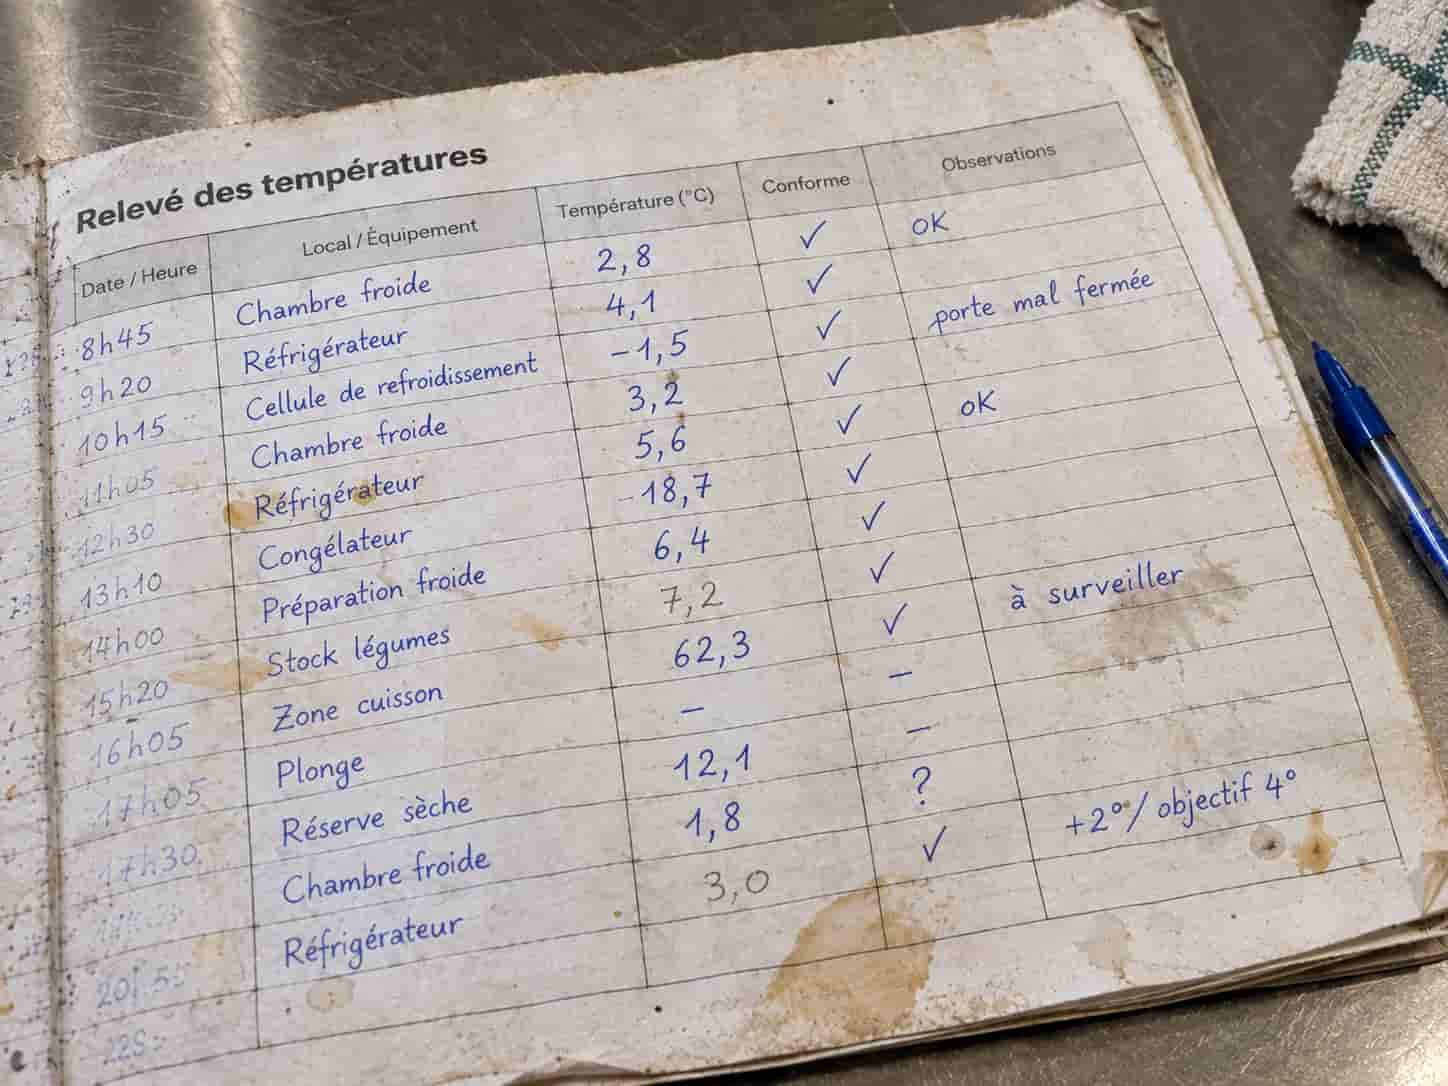 Relevé des températures
Date / Heure Local / Équipement Température (°C) Conforme Observations
8h45 Chambre froide 2,8 ✓ OK
9h20 Réfrigérateur 4,1 ✓
10h15 Cellule de refroidissement -1,5 ✓ porte mal fermée
11h05 Chambre froide 3,2 ✓
12h30 Réfrigérateur 5,6 ✓ OK
13h10 Congélateur -18,7 ✓
14h00 Préparation froide 6,4 ✓
15h20 Stock légumes 7,2 ✓
16h05 Zone cuisson 62,3 ✓ à surveiller
17h05 Plonge – –
17h30 Réserve sèche 12,1 –
Chambre froide 1,8 ?
Réfrigérateur 3,0 ✓ +2°/ objectif 4°